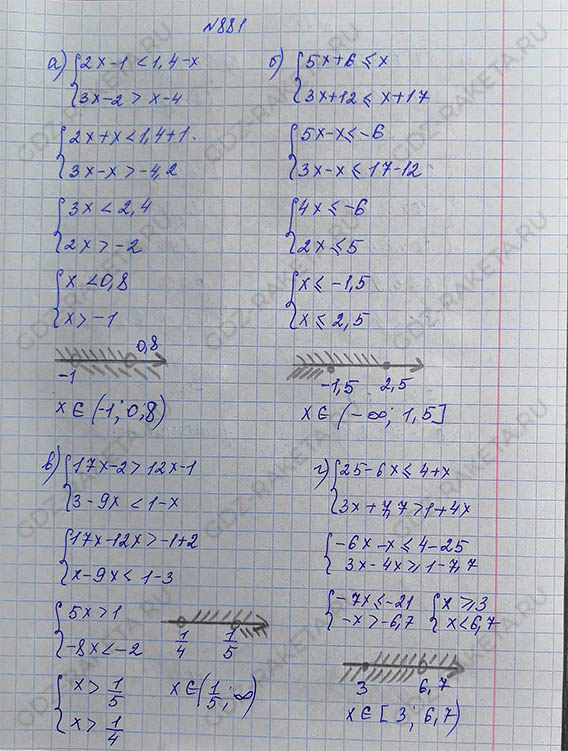 №881
а) {2x-1<1,4-x
3x-2>x-4
{2x+x<1,4+1
3x-x>-4,2
{3x<2,4
2x>-2
{x<0,8
x>-1
-1 0,8
x∈(-1;0,8)
б) {5x+6≤x
3x+12≤x+17
{5x-x≤-6
3x-x≤17-12
{4x≤-6
2x≤5
{x≤-1,5
x≤2,5
-1,5 2,5
x∈(-∞; 1,5]
в) {17x-2>12x-1
3-9x<1-x
{17x-12x>-1+2
x-9x<1-3
{5x>1
-8x<-2
1/4 1/5
{x>1/5
x>1/4
x∈(1/5;∞)
г) {25-6x≤4+x
3x+7,7>1+4x
{-6x-x≤4-25
3x-4x≥1-7,7
{-7x≤-21 {x≥3
-x>-6,7 x<6,7
3 6,7
x∈[3;6,7)
GDZ-RAKETA.RU